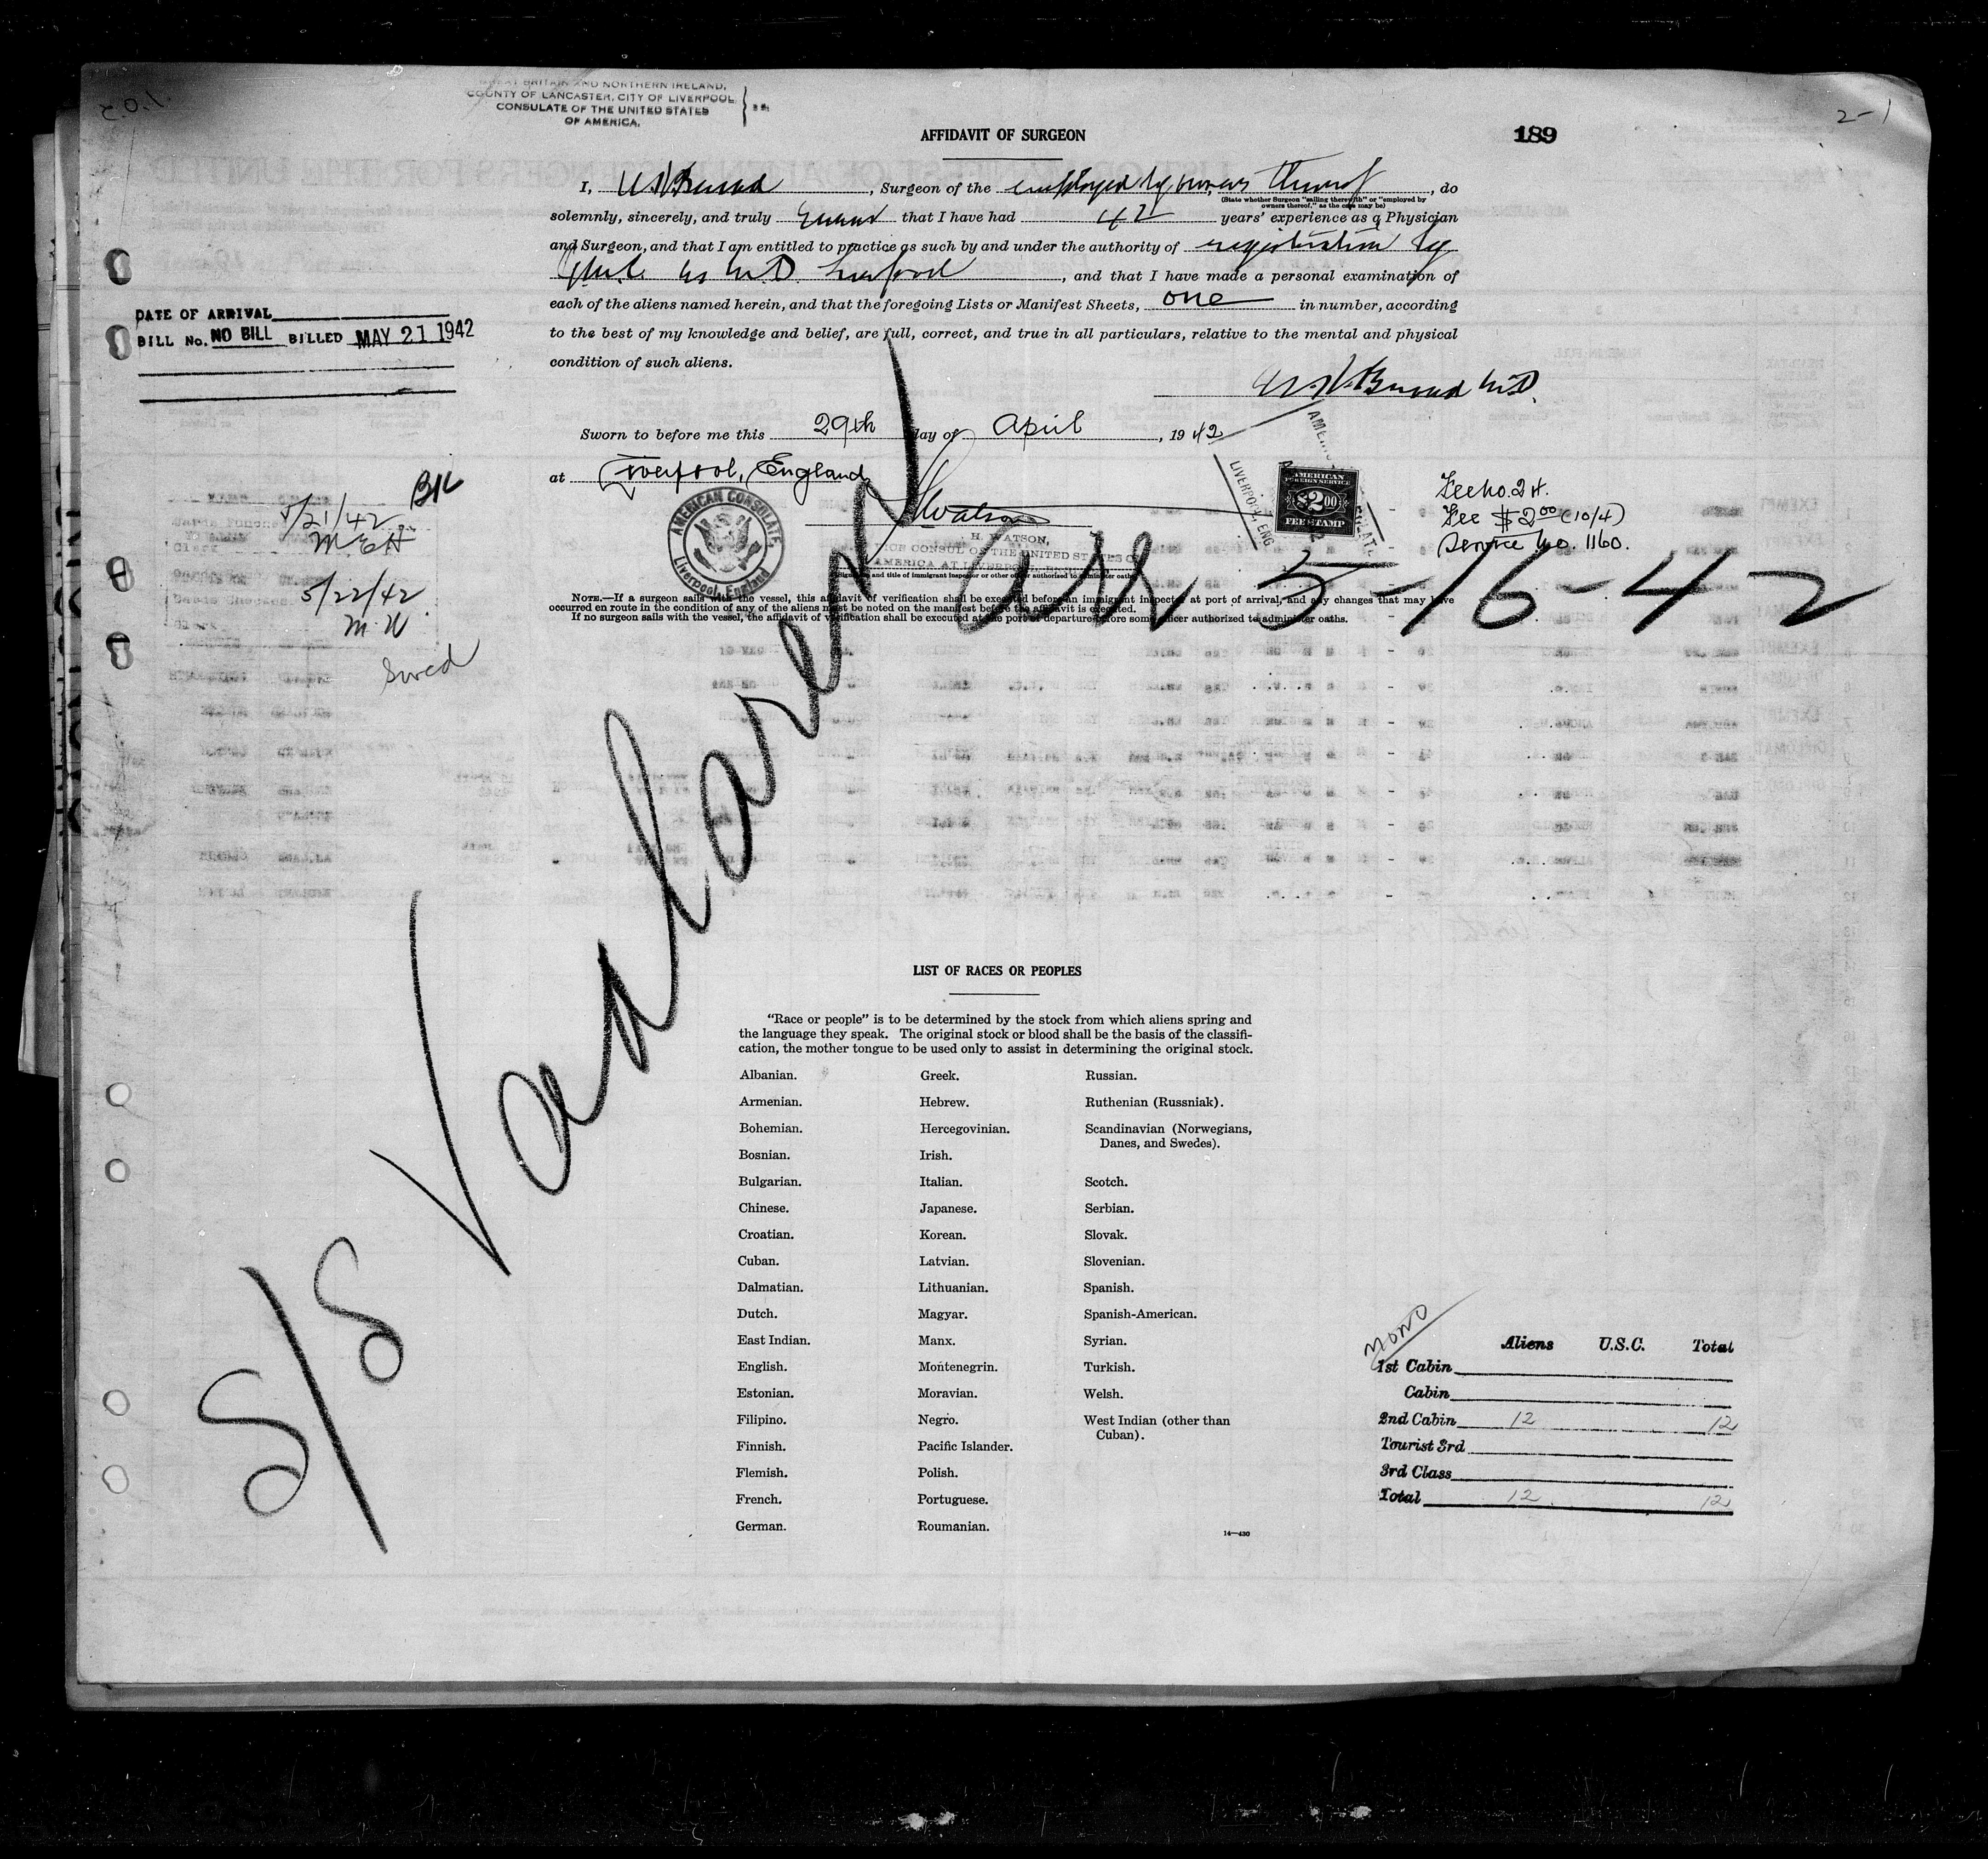 GREAT BRITAIN AND NORTHERN IRELAND,
COUNTY OF LANCASTER, CITY OF LIVERPOOL
CONSULATE OF THE UNITED STATES
OF AMERICA.
AFFIDAVIT OF SURGEON
189
2-1
I, , Surgeon of the employed by owners thereof, do
(State whether Surgeon "sailing therewith" or "employed by
owners thereof," as the case may be)
solemnly, sincerely, and truly swear that I have had 42 years' experience as a Physician
and Surgeon, and that I am entitled to practice as such by and under the authority of registration by
, and that I have made a personal examination of
each of the aliens named herein, and that the foregoing Lists or Manifest Sheets, one in number, according
to the best of my knowledge and belief, are full, correct, and true in all particulars, relative to the mental and physical
condition of such aliens.
DATE OF ARRIVAL
BILL No. NO BILL BILLED MAY 21 1942
Sworn to before me this 29th day of April, 1942
at Liverpool, England
Watson
H. WATSON,
VICE CONSUL OF THE UNITED STATES OF
AMERICA AT LIVERPOOL, ENGLAND
(Signature and title of immigrant inspector or other officer authorized to administer oaths)
AMERICAN CONSULATE,
Liverpool, England
AMERICAN
FOREIGN SERVICE
$2.00
FEE STAMP
LIVERPOOL, ENG.
Fee No. 24.
Fee $2.00 (10/4)
Service No. 1160.
5/21/42
MEH
5/22/42
M W
NOTE.—If a surgeon sails with the vessel, this affidavit of verification shall be executed before an immigrant inspector at port of arrival, and any changes that may have
occurred en route in the condition of any of the aliens must be noted on the manifest before the affidavit is executed.
If no surgeon sails with the vessel, the affidavit of verification shall be executed at the port of departure before some officer authorized to administer oaths.
S/S
arr 5-16-42
LIST OF RACES OR PEOPLES
"Race or people" is to be determined by the stock from which aliens spring and
the language they speak. The original stock or blood shall be the basis of the classifi-
cation, the mother tongue to be used only to assist in determining the original stock.
Albanian.
Armenian.
Bohemian.
Bosnian.
Bulgarian.
Chinese.
Croatian.
Cuban.
Dalmatian.
Dutch.
East Indian.
English.
Estonian.
Filipino.
Finnish.
Flemish.
French.
German.
Greek.
Hebrew.
Hercegovinian.
Irish.
Italian.
Japanese.
Korean.
Latvian.
Lithuanian.
Magyar.
Manx.
Montenegrin.
Moravian.
Negro.
Pacific Islander.
Polish.
Portuguese.
Roumanian.
Russian.
Ruthenian (Russniak).
Scandinavian (Norwegians,
Danes, and Swedes).
Scotch.
Serbian.
Slovak.
Slovenian.
Spanish.
Spanish-American.
Syrian.
Turkish.
Welsh.
West Indian (other than
Cuban).
14—430
Aliens U.S.C. Total
1st Cabin
Cabin
2nd Cabin 12 12
Tourist 3rd
3rd Class
Total 12 12